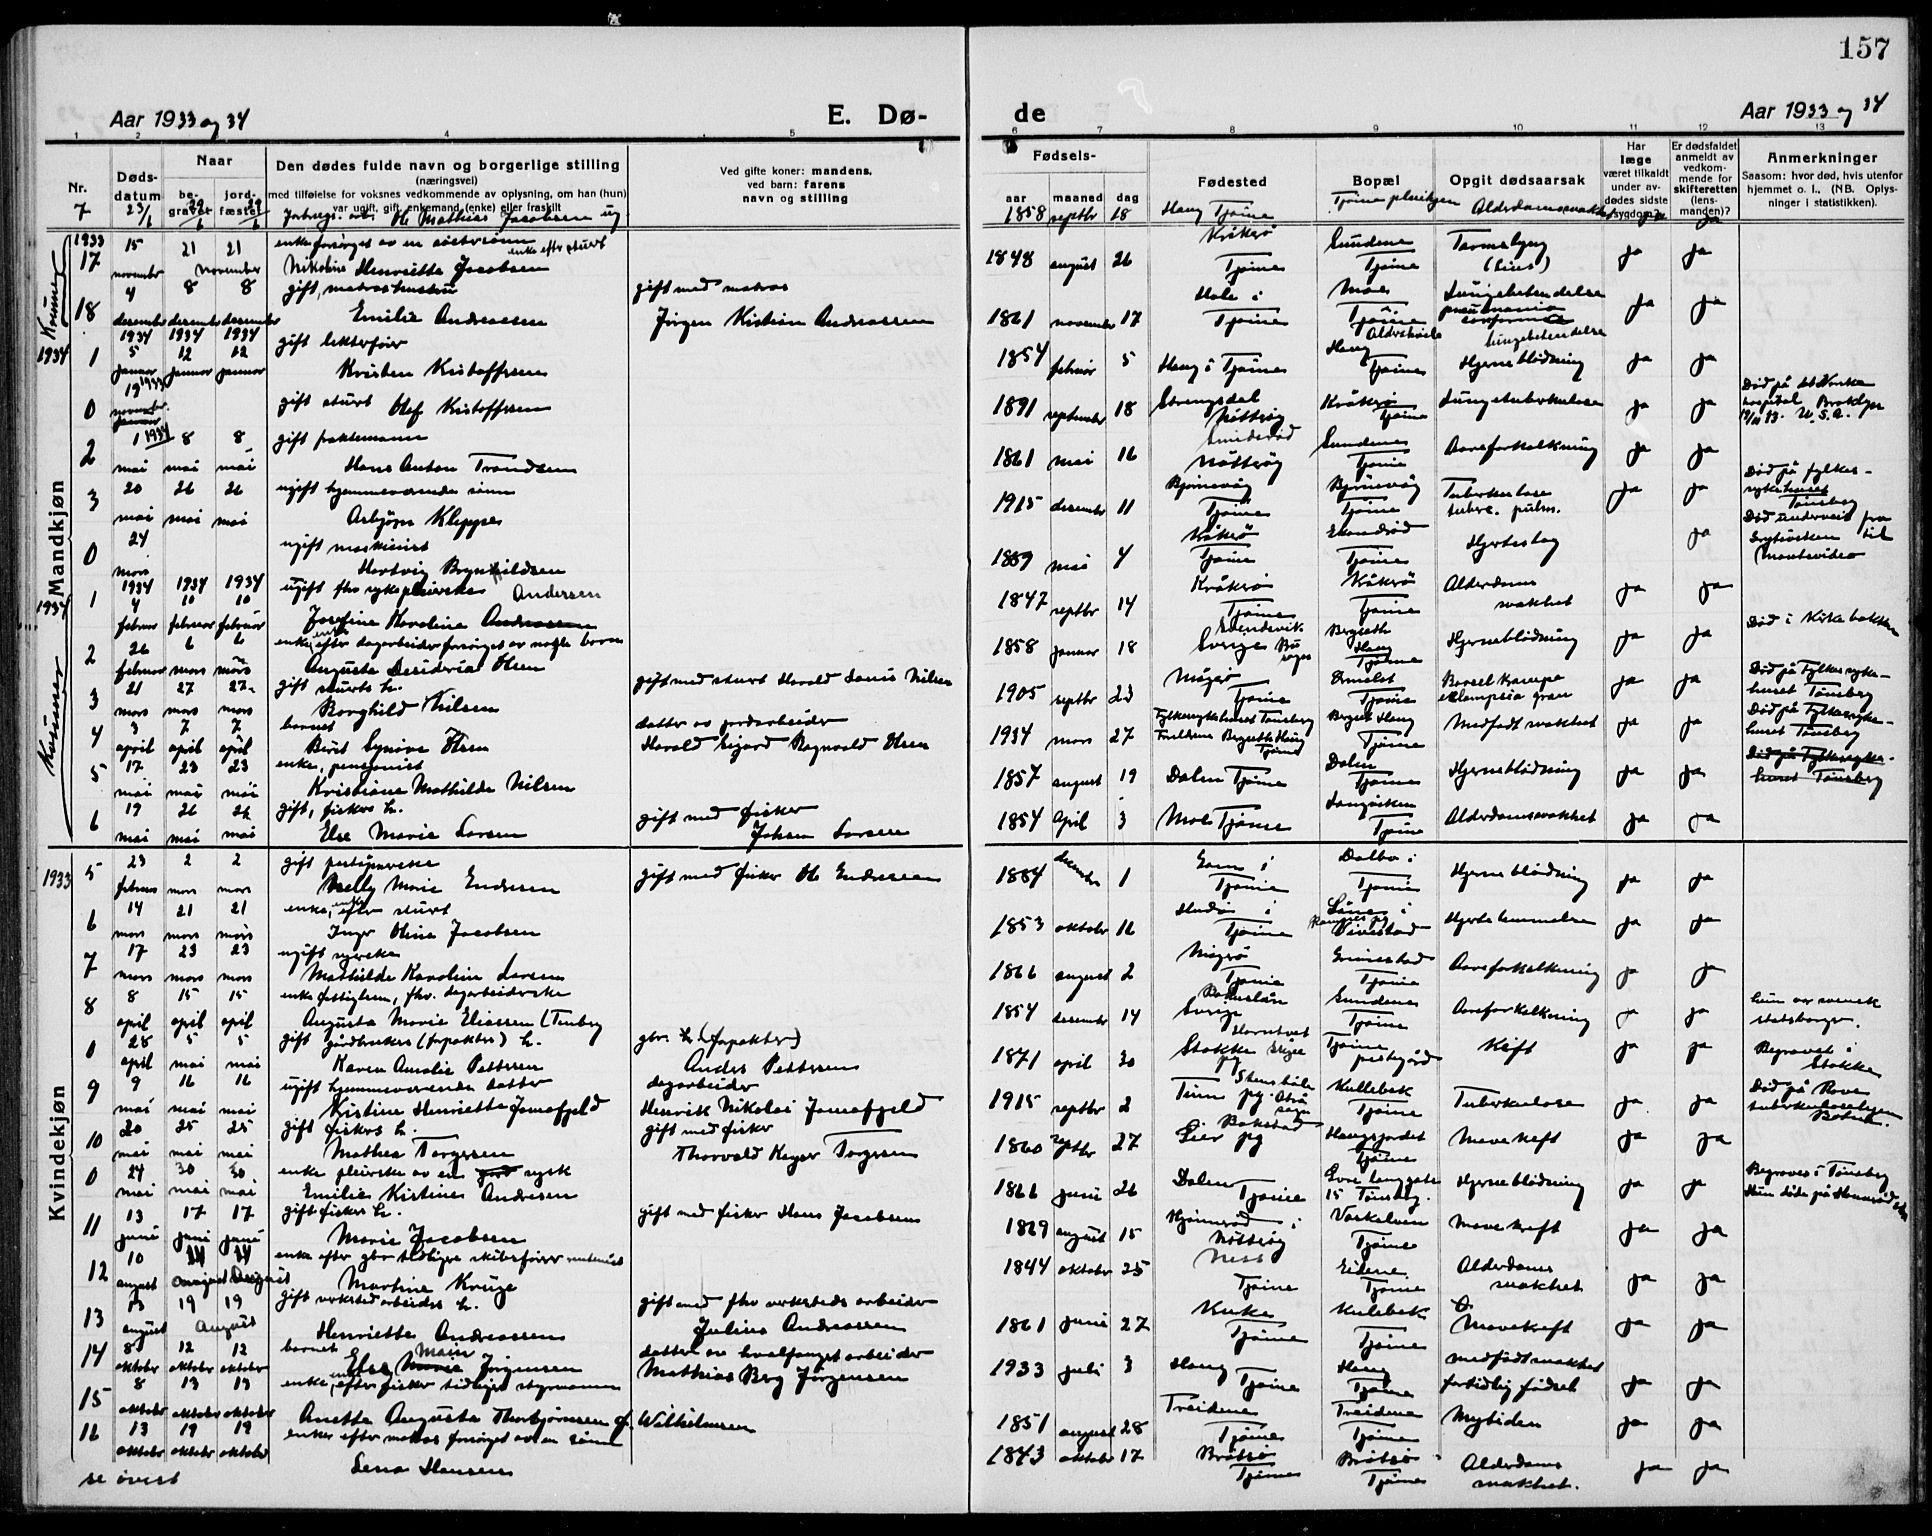 157
Aar 1933 og 34 E. Dø- de Aar 1933 og 34
1 2 4 5 6 7 8 9 10 11 12 13
Nr.
Dødsdatum
Naar
begravet
jordfæstet
Den dødes fulde navn og borgerlige stilling
(næringsvei)
med tilføielse for voksnes vedkommende av oplysning, om han (hun)
var ugift, gift, enkemand, (enke) eller fraskilt
Ved gifte koner: mandens,
ved barn: farens
navn og stilling
Fødsels-
aar maaned dag
Fødested
Bopæl
Opgit dødsaarsak
Har læge været tilkaldt under avdødes sidste sygdom?
Er dødsfaldet anmeldt av vedkommende for skifteretten (lensmanden)?
Anmerkninger
Saasom: hvor død, hvis utenfor
hjemmet o. l., (NB. Oplysninger i statistikken).
7 23/6 29/6 29/6 Ole Mathias Jacobsen ug 1858 septbr 18 Haug Tjøme Tjøme pleiehjem Alderdomssvakhet ja ja
Kvinner
1933
17 15 november 21 21 november enke forsørget av en søster sønn enke efter stuert
Nikoline Henriette Jacobsen 1848 august 26 Kråkerø Tjøme Sundene Tjøme Tarmslyng (Ileus) ja ja
18 4 desember 8 desember 8 desember gift, matros hustru
Emilie Andreassen gift med matros
Jørgen Kristian Andreassen 1861 november 17 Hole i Tjøme Moe i Tjøme Lungebetendelse pneumonia ja ja
Mandkjøn
1934
1 1934 5 januar 1934 12 januar 1934 12 januar gift lekterfør
Kristen Kristoffersen 1854 februar 5 Haug i Tjøme Haug Tjøme Hjerneblødning ja ja
0 19 1933 november gift stuert Olef Kristoffersen 1891 september 18 Strengsdal Nøtterøy Kråkerø Tjøme Lungetuberkulose ja ja Død på det Norske hospital Broklyn 19/11 33. U.S.A.
2 1 1934 mai 8 mai 8 mai gift faktemann
Hans Anton Trondsen 1861 mai 16 Smidsrød Nøtterøy Sundene Tjøme Aareforkalkning ja ja
3 20 mai 26 mai 26 mai ugift hjemmeværende sønn
Asbjørn Kleppe 1915 desember 11 Bjørnevåg Tjøme Bjørnevåg Tjøme Tuberkulose tuberc. pulm. ja ja Død på fylkessykehuset Tønsberg
0 24 mars ugift maskinist
Hartvig Brynhildsen 1889 mai 4 Kråkerø Tjøme Tjøme Hjerteslag ja Død underveis fra til Montevideo
1934
1 1934 4 februar 1934 10 februar 1934 10 februar ugift fhv sykepleierske Andersen
Josefine Karoline Andreassen 1847 septbr 14 Kråkerø Tjøme Kråkerø Tjøme Alderdoms svakhet ja ja
2 26 februar 6 mars 6 mars enke efter dagarbeider forsørget av nogle barn
Augusta Desideria Olsen 1858 januar 18 Sverige Haug Tjøme Hjerneblødning ja ja Død i Kirkebakken
3 21 mars 27 mars 27 mars gift stuerts h.
Borghild Nilsen gift med stuert Harald Louis Nilsen 1905 septbr 23 Mågerø Tjøme Ormelet Tjøme Barselkrampe eklampsia grav ja ja Død på Fylkessykehuset Tønsberg
4 3 april 7 april 7 april barnet
Berit Synøve Olsen datter av jordarbeider
Harald Sigurd Ragnvald Olsen 1934 mars 27 Fylkessykehuset Tønsberg Foreldrene Bergseth Haug Tjøme Bergset Haug Tjøme Medfødt svakhet ja ja Død på Fylkessykehuset Tønsberg
5 17 mai 23 mai 23 mai enke, pensjonist
Kristiane Mathilde Nilsen 1857 august 19 Dalen Tjøme Dalen Tjøme Hjerneblødning ja ja Død på Fylkessykehuset Tønsberg
6 19 mai 26 mai 26 mai gift, fiskers h.
Else Marie Larsen gift med fisker
Johan Larsen 1854 April 3 Moe Tjøme Langviken Tjøme Alderdomssvakhet ja ja
Kvindekjøn
1933
5 23 februar 2 mars 2 mars gift
Nelly Marie Endresen gift med fisker Ole Endresen 1884 desember 1 Grim i Tjøme Dalbo i Tjøme Hjerneblødning ja ja
6 14 mars 21 mars 21 mars enke, enke efter stuert
Inger Oline Jacobsen 1853 oktober 16 Hudø i Tjøme Ramnes pg Vivestad Hjertelammelse ja ja
7 17 mars 23 mars 23 mars ugift syerske
Mathilde Karoline Larsen 1866 august 2 Mågerø Tjøme Grimestad Tjøme Aareforkalkning ja ja
8 8 april 15 april 15 april enke fattiglem, fhv. dagarbeiderske
Augusta Marie Eliassen (Tenberg 1854 desember 14 Bohuslän Sverige Sundene Tjøme Aareforkalkning ja ja hun er svensk statsborger.
0 28 april 5 mai 5 mai gift gårdbrukers (forpakter) h.
Karen Amalie Pettersen gbr. h (forpakter)
Anders Pettersen 1871 april 30 Stokke pg Tjøme prestegård Kreft ja ja Begravet i Stokke
9 9 mai 16 mai 16 mai ugift hjemmeværende datter
Kristine Henriette Jomafjeld dagarbeider
Henrik Nikolai Jomafjeld 1915 septbr 2 Tinn pg Kullebek Tjøme Tuberkulose ja ja Død på Rove tuberkulosehjem Botne.
10 20 mai 25 mai 25 mai gift fiskers h.
Mathea Torgersen gift med fisker
Thorvald Keyser Torgersen 1860 septbr 27 Lier pg Haugsjordet Tjøme Mavekreft ja ja
0 24 mai 30 mai 30 mai enke pleierske av en sysk
Emilie Kristine Andresen 1866 juni 26 Dalen Tjøme Øvre langgate 15 Tønsberg. Hjerneblødning ja ja Begraves i Tønsberg
11 13 juni 17 juni 17 juni gift fiskers h.
Marie Jacobsen gift med fisker Hans Jacobsen 1869 august 15 i Nøtterøy Vaskalven Tjøme Mavekreft ja ja
12 10 august 14 august 14 August enke efter gbr tidligere skibsfører
Martine Kruge 1844 oktober 25 Ness Tjøme Eidene Tjøme Alderdoms svakhet ja ja
13 13 august 19 19 August gift verkstedarbeiders h.
Henriette Andreassen gift med fhv verkstedsarbeider
Julius Andreassen 1861 juni 27 Kirke Tjøme Kulebek Tjøme Mavekreft ja ja
14 8 oktober 12 oktober 12 oktober barnet
Else Marie Main Jørgensen datter av hvalfangstarbeider
Mathias Berg Jørgensen 1933 juli 3 Haug Tjøme Haug Tjøme medfødt svakhet fortidlig fødsel ja ja
15 8 oktober 13 oktober 13 oktober enke, enke efter fisker tidligere styrmann
Anette Augusta Thorbjørnsen f. Wilhelmsen 1851 august 28 Treidene Tjøme Treidene Tjøme ja ja
16 13 oktober 19 oktober 19 oktober enke efter matros forsørget av en sønn
Lena Hansen 1843 oktober 17 Brøtsø Tjøme Brøtsø Tjøme Alderdoms svakhet. ja ja
se øverst